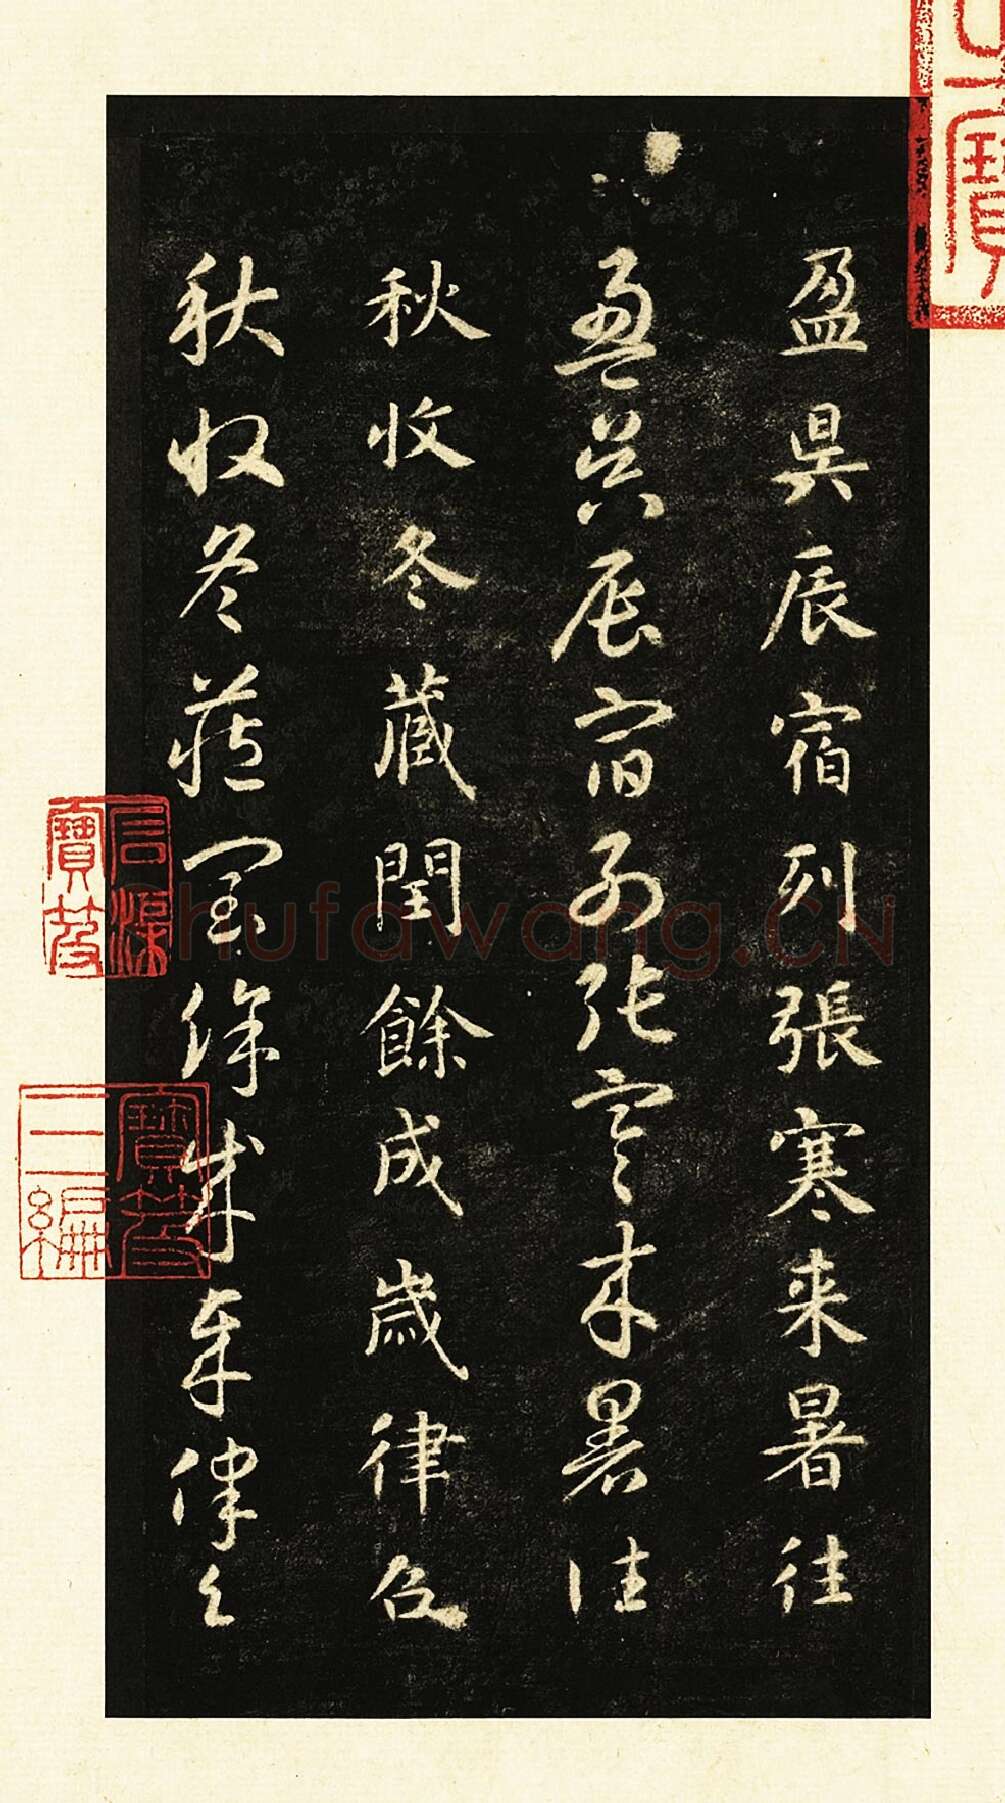 盈昃辰宿列張寒来暑往
盈昃辰宿列張寒来暑往
秋收冬藏閏餘成歲律召
秋收冬藏閏餘成歲律召
之寶
石渠
寶笈
寶笈
三編
hufawang.CN